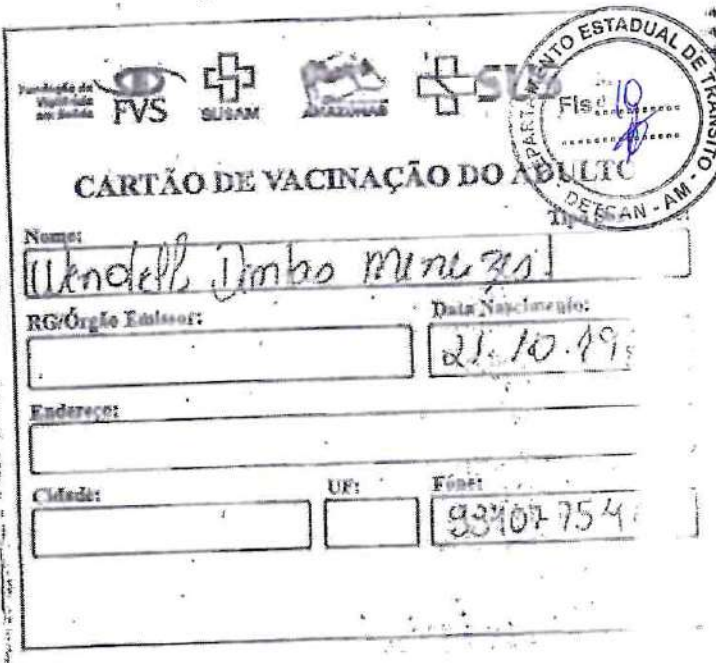 Fundação de
Vigilância
em Saúde
FVS
SUSAM
AMAZONAS
SUS
DEPARTAMENTO ESTADUAL DE TRÂNSITO
Fls 10
DETRAN - AM
CARTÃO DE VACINAÇÃO DO ADULTO
Nome:
Wendell Menezes
RG/Órgão Emissor:
Data Nascimento:
21.10.19
Endereço:
Cidade:
UF:
Fone:
99107 754